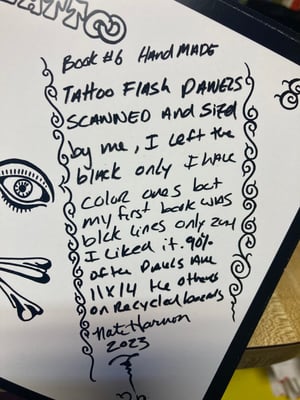 TATTOO
Book #6 HandMADE
Tattoo Flash Panels
Scanned And Sized
by me, I left the
black only I have
color ones but
my first book was
blck lines only and
I liked it. 90%
of the Panels Are
11x14 the others
on Recycled boards
Nate Harmon
2023